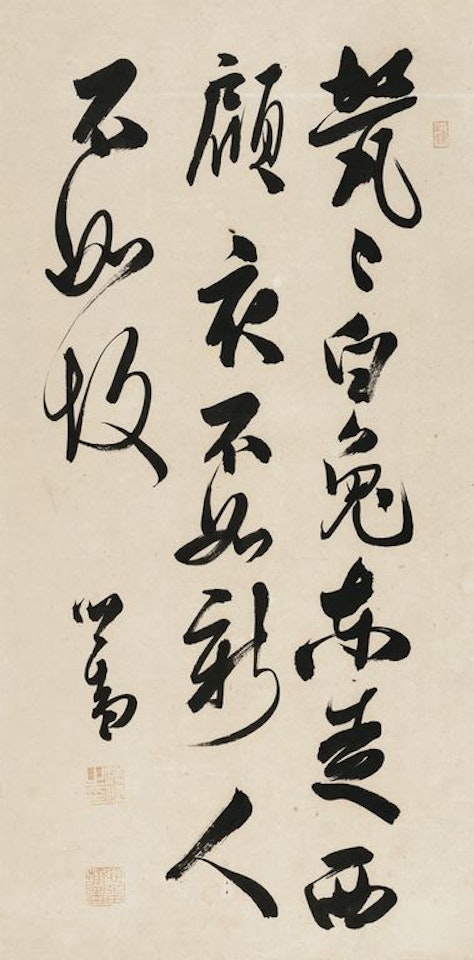 煢〻白兔東走西
顧衣不如新人
不如故
心畬